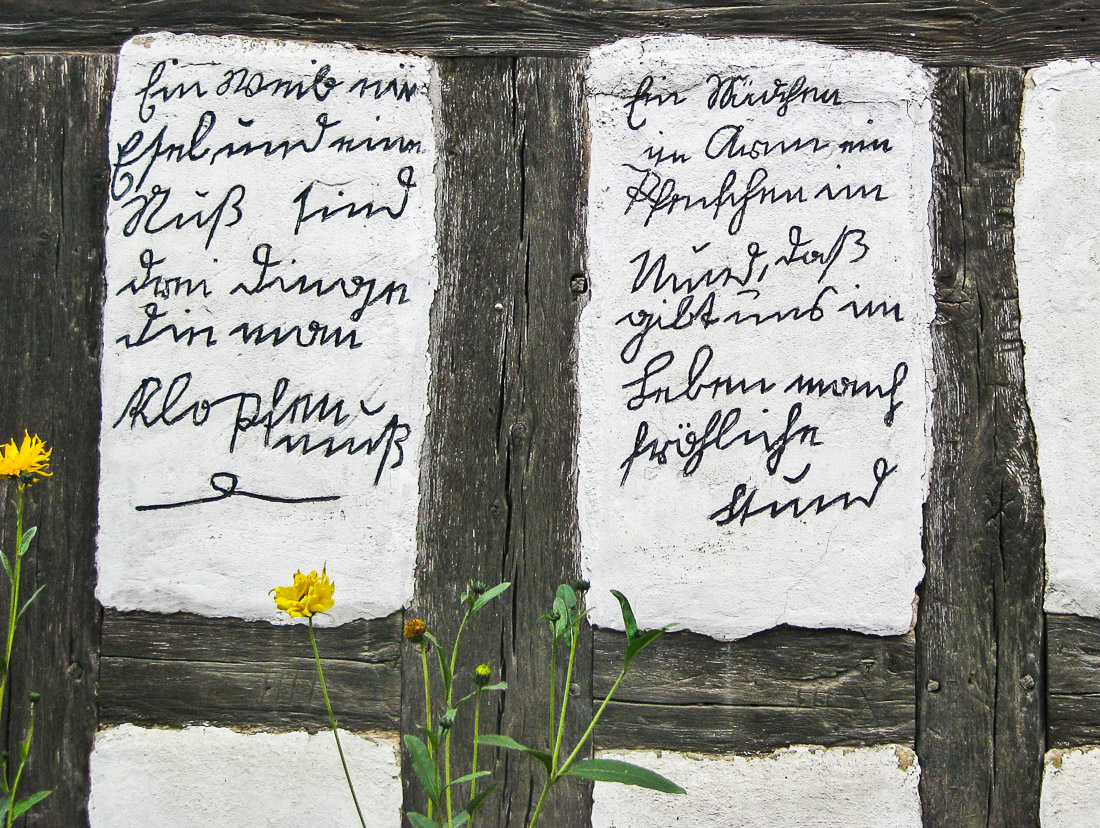 Ein Weib ein
Esel, und eine
Nuß sind
drei Dinge
die man
Klopfen
muß
Ein Mädchen
im Arm ein
Pfeifchen im
Mund, daß
gibt uns im
Leben manch
fröhliche
Stund